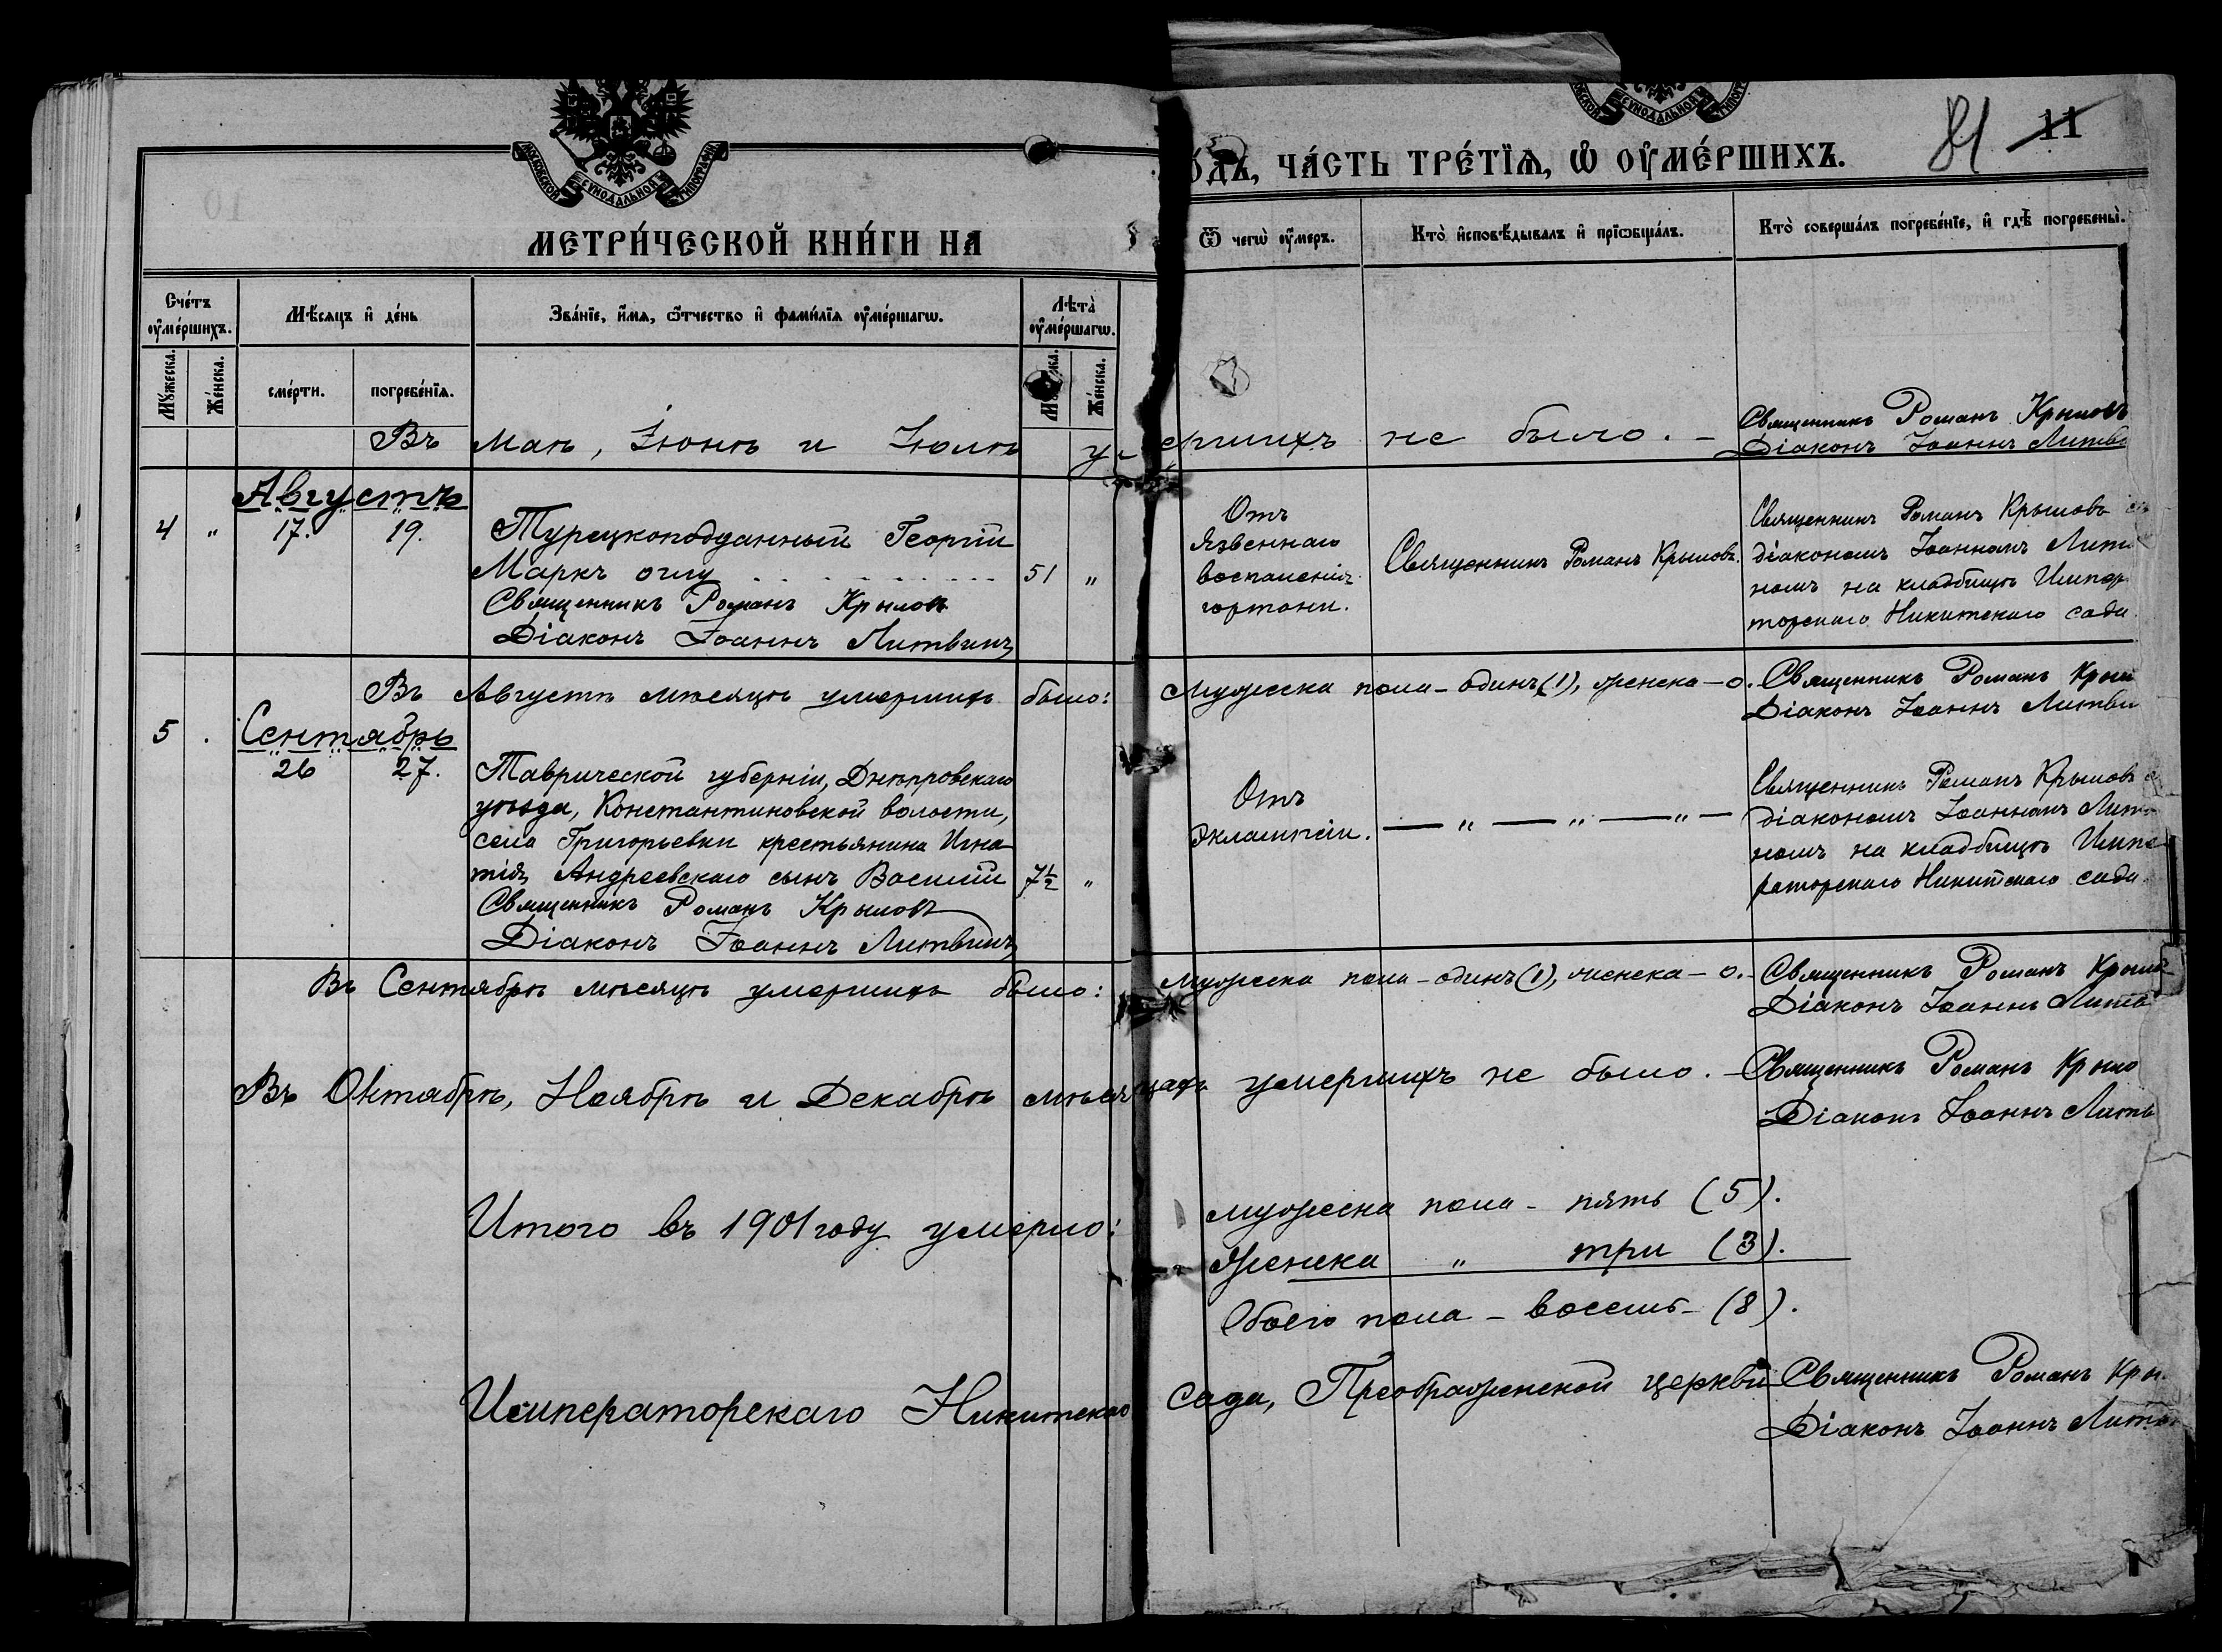 МОСКОВСКОЙ СѴНОДАЛЬНОЙ ТИПОГРАФІИ
МЕТРИ́ЧЕСКОЙ КНИ́ГИ НА
Сче́тъ ᲂу҆ме́ршихъ.
Мѣ́сяцъ и҆ де́нь
Зва́нїе, и҆́мѧ, ѻ҆́тчество и҆ фами́лїѧ ᲂу҆ме́ршагѡ.
Лѣта̀ ᲂу҆ме́ршагѡ.
Мꙋ́жеска.
Же́нска.
сме́рти.
погребе́нїѧ.
Же́нска.
ЧА́СТЬ ТРЕ́ТЇѦ, Ѡ҆ ОУ҆МЕ́РШИХЪ.
81 11
Ѿ чегѡ̀ ᲂу҆́меръ.
Кто̀ и҆сповѣ́дывалъ и҆ прїѡбща́лъ.
Кто̀ соверша́лъ погребе́нїе, и҆ гдѣ̀ погребены̀.
Въ маѣ, Іюнѣ и Іюлѣ у ершихъ не было. –
Священникъ Романъ Крыловъ
Діаконъ Іоаннъ Литви
Августъ
4 " 17. 19.
Турецкоподданный Георгій
Маркъ оглу . . . . . . . . . . 51 "
Священникъ Романъ Крыловъ
Діаконъ Іоаннъ Литвинъ
Отъ
язвеннаго
воспаленія
гортани.
Священникъ Романъ Крыловъ.
Священникъ Романъ Крыловъ съ
діакономъ Іоанномъ Литви
номъ на кладбищѣ Импера
торскаго Никитскаго сада.
Въ Августѣ мѣсяцѣ умершихъ было: мужеска пола – одинъ (1), женска – 0.
Священникъ Романъ Крыл
Діаконъ Іоаннъ Литви
Сентябрь
5 . 26 27.
Таврической губерніи, Днѣпровскаго
уѣзда, Константиновской волости,
села Григорьевки крестьянина Игна
тія Андреевскаго сынъ Василій 7½ "
Священникъ Романъ Крыловъ
Діаконъ Іоаннъ Литвинъ
Отъ
эклампсіи.
— " — " — " —
Священникъ Романъ Крыловъ с
діакономъ Іоанномъ Литви
номъ на кладбищѣ Импе
раторскаго Никитскаго сада.
Въ Сентябрѣ мѣсяцѣ умершихъ было: мужеска пола – одинъ (1), женска – 0.
Священникъ Романъ Крылов
Діаконъ Іоаннъ Литв
Въ Октябрѣ, Ноябрѣ и Декабрѣ мѣсяцахъ умершихъ не было. –
Священникъ Романъ Крыло
Діаконъ Іоаннъ Литв
Итого въ 1901 году умерло: мужеска пола – пять (5).
женска " три (3).
Обоего пола – восемь – (8).
Императорскаго Никитскаго сада, Преображенской церкви
Священникъ Романъ Кры
Діаконъ Іоаннъ Литви